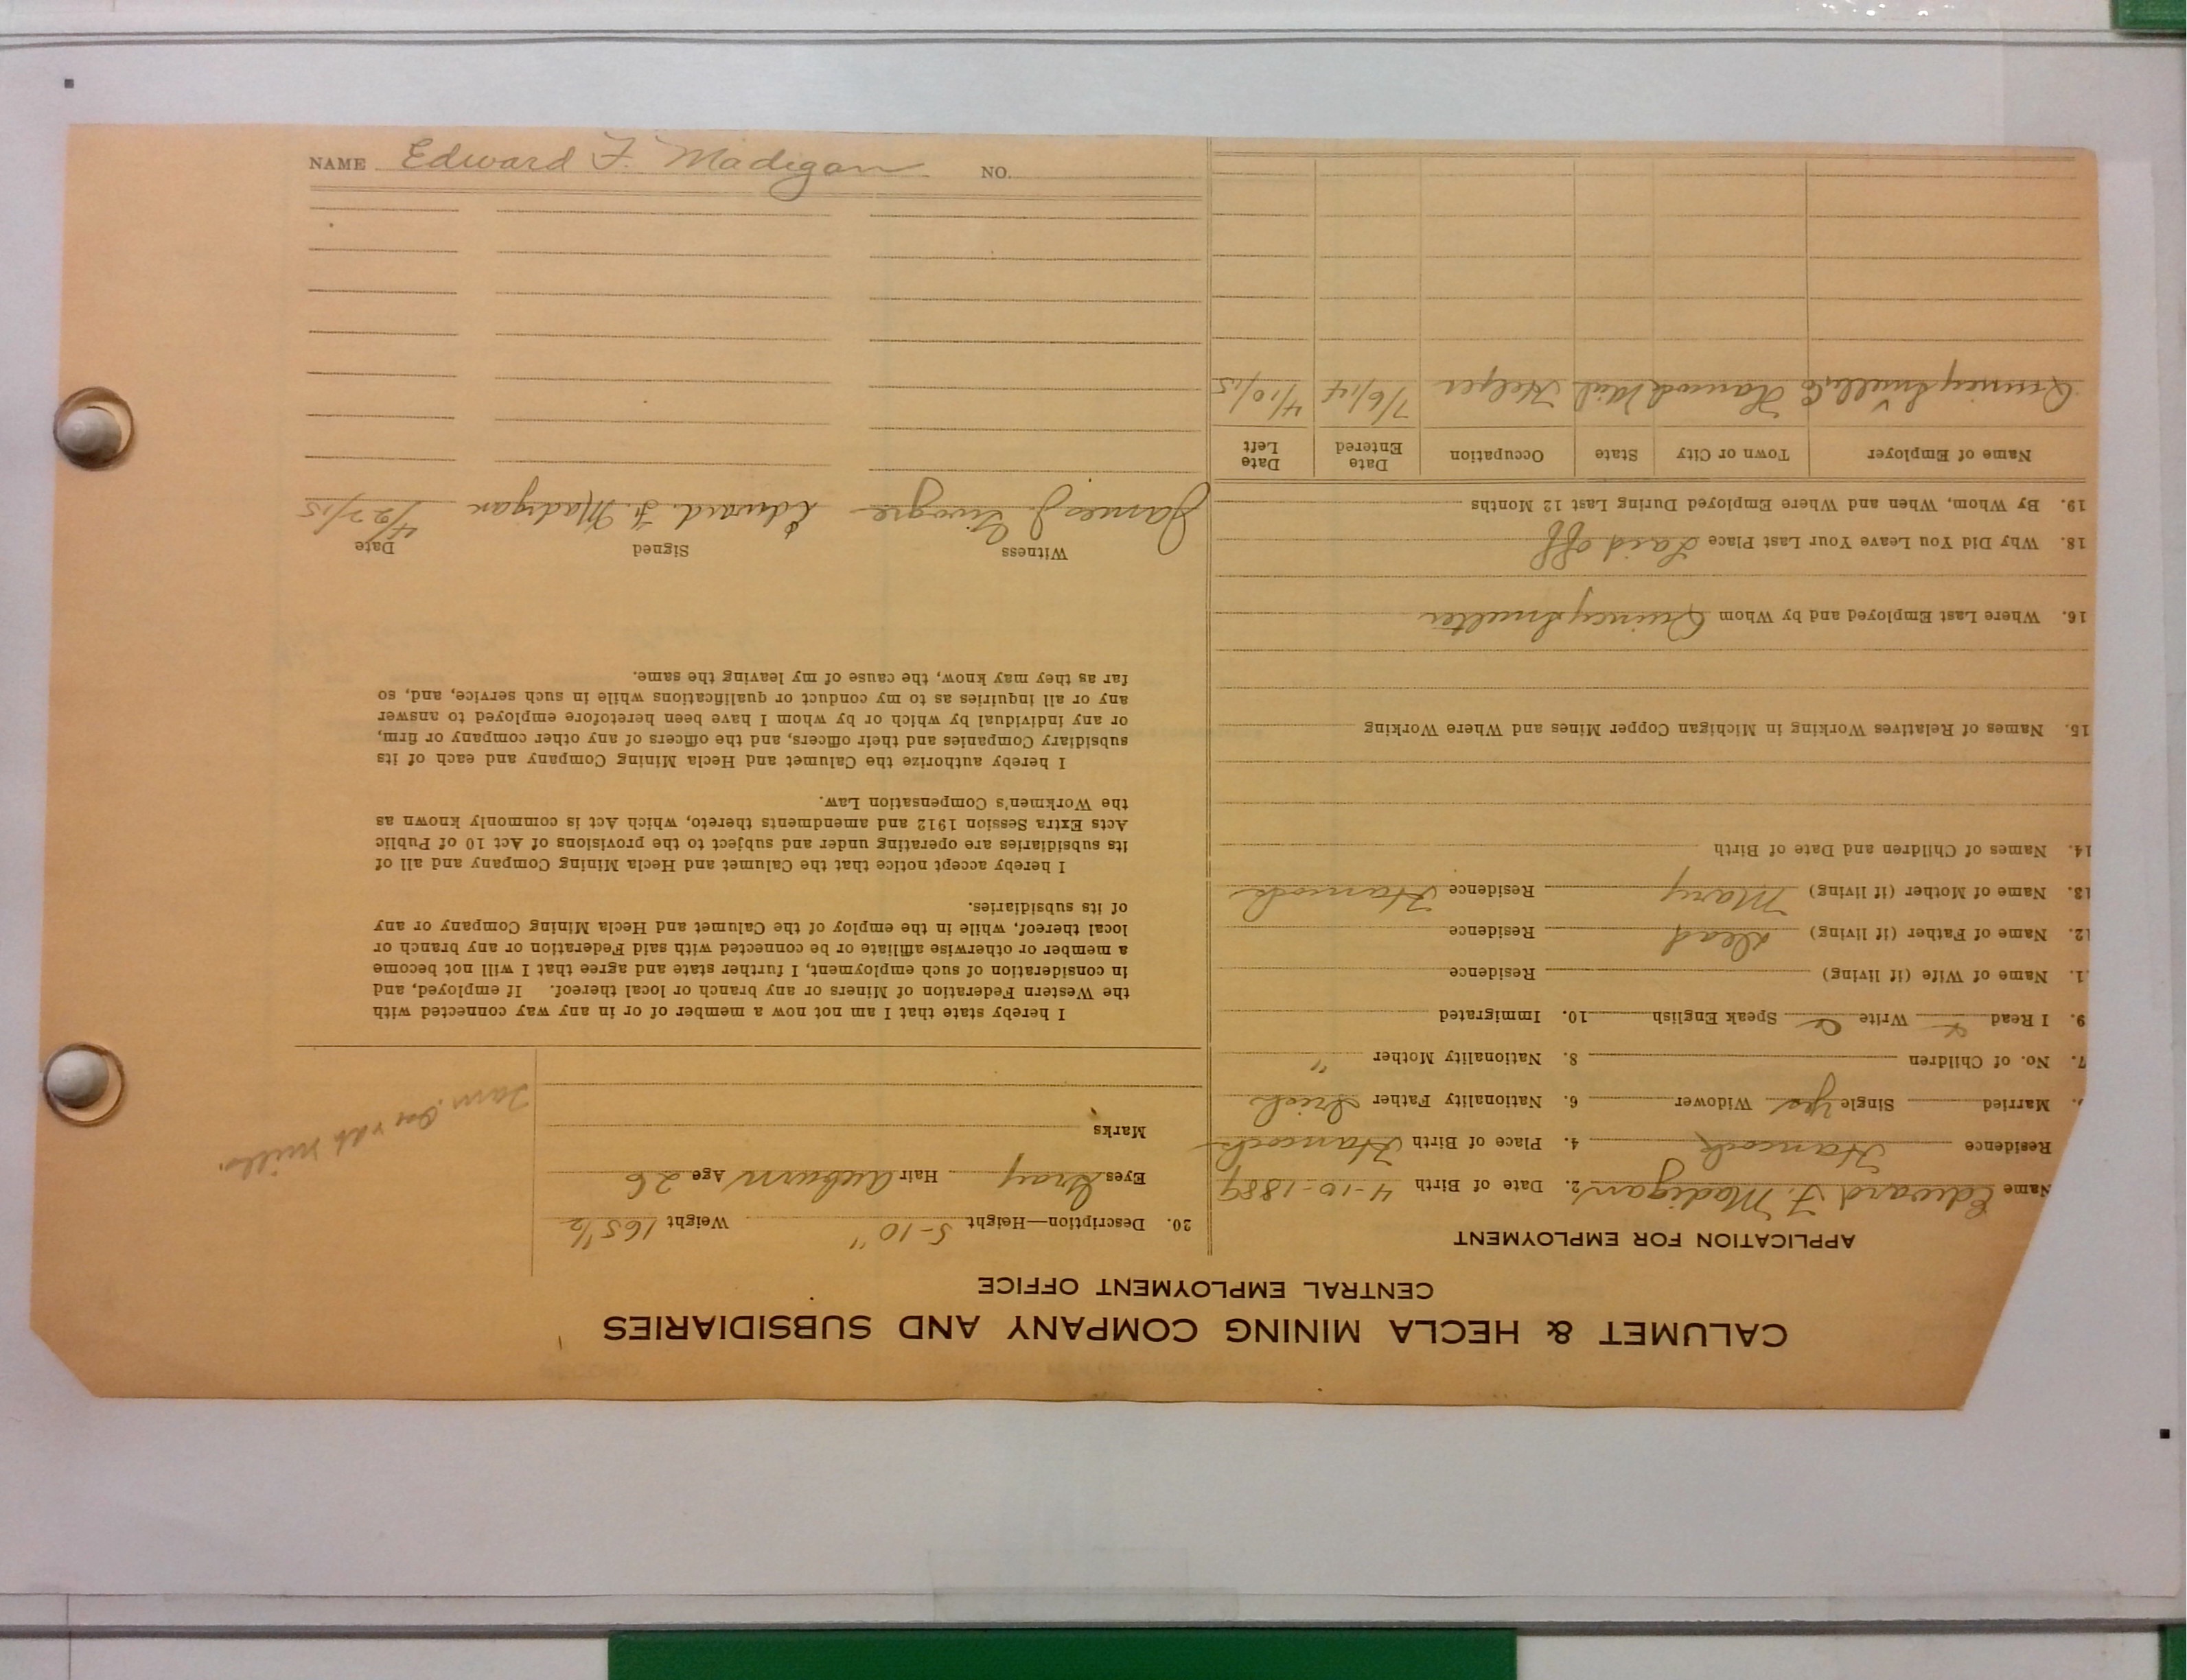 CALUMET & HECLA MINING COMPANY AND SUBSIDIARIES
CENTRAL EMPLOYMENT OFFICE
APPLICATION FOR EMPLOYMENT
Name Edward F. Madigan 2. Date of Birth 4-10-1889
Residence Hancock 4. Place of Birth Hancock
Married Single Yes Widower 6. Nationality Father Irish
7. No. of Children 8. Nationality Mother "
9. I Read Write Speak English 10. Immigrated
1. Name of Wife (if living) Residence
12. Name of Father (if living) Dead Residence
13. Name of Mother (if living) Mary Residence Hancock
14. Names of Children and Date of Birth
15. Names of Relatives Working in Michigan Copper Mines and Where Working
16. Where Last Employed and by Whom Quincy Smelter
18. Why Did You Leave Your Last Place Laid off
19. By Whom, When and Where Employed During Last 12 Months
Name of Employer Town or City State Occupation Date Entered Date Left
Quincy Smelter Hancock Mich Helper 7/6/14 4/10/15
20. Description—Height 5-10" Weight 165 1/2
Eyes Gray Hair Auburn Age 26
Marks
mills.
I hereby state that I am not now a member of or in any way connected with
the Western Federation of Miners or any branch or local thereof. If employed, and
in consideration of such employment, I further state and agree that I will not become
a member or otherwise affiliate or be connected with said Federation or any branch or
local thereof, while in the employ of the Calumet and Hecla Mining Company or any
of its subsidiaries.
I hereby accept notice that the Calumet and Hecla Mining Company and all of
its subsidiaries are operating under and subject to the provisions of Act 10 of Public
Acts Extra Session 1912 and amendments thereto, which Act is commonly known as
the Workmen's Compensation Law.
I hereby authorize the Calumet and Hecla Mining Company and each of its
subsidiary Companies and their officers, and the officers of any other company or firm,
or any individual by which or by whom I have been heretofore employed to answer
any or all inquiries as to my conduct or qualifications while in such service, and, so
far as they may know, the cause of my leaving the same.
Witness Signed Date
James J. Edward F. Madigan 4/22/15
NAME Edward F. Madigan NO.